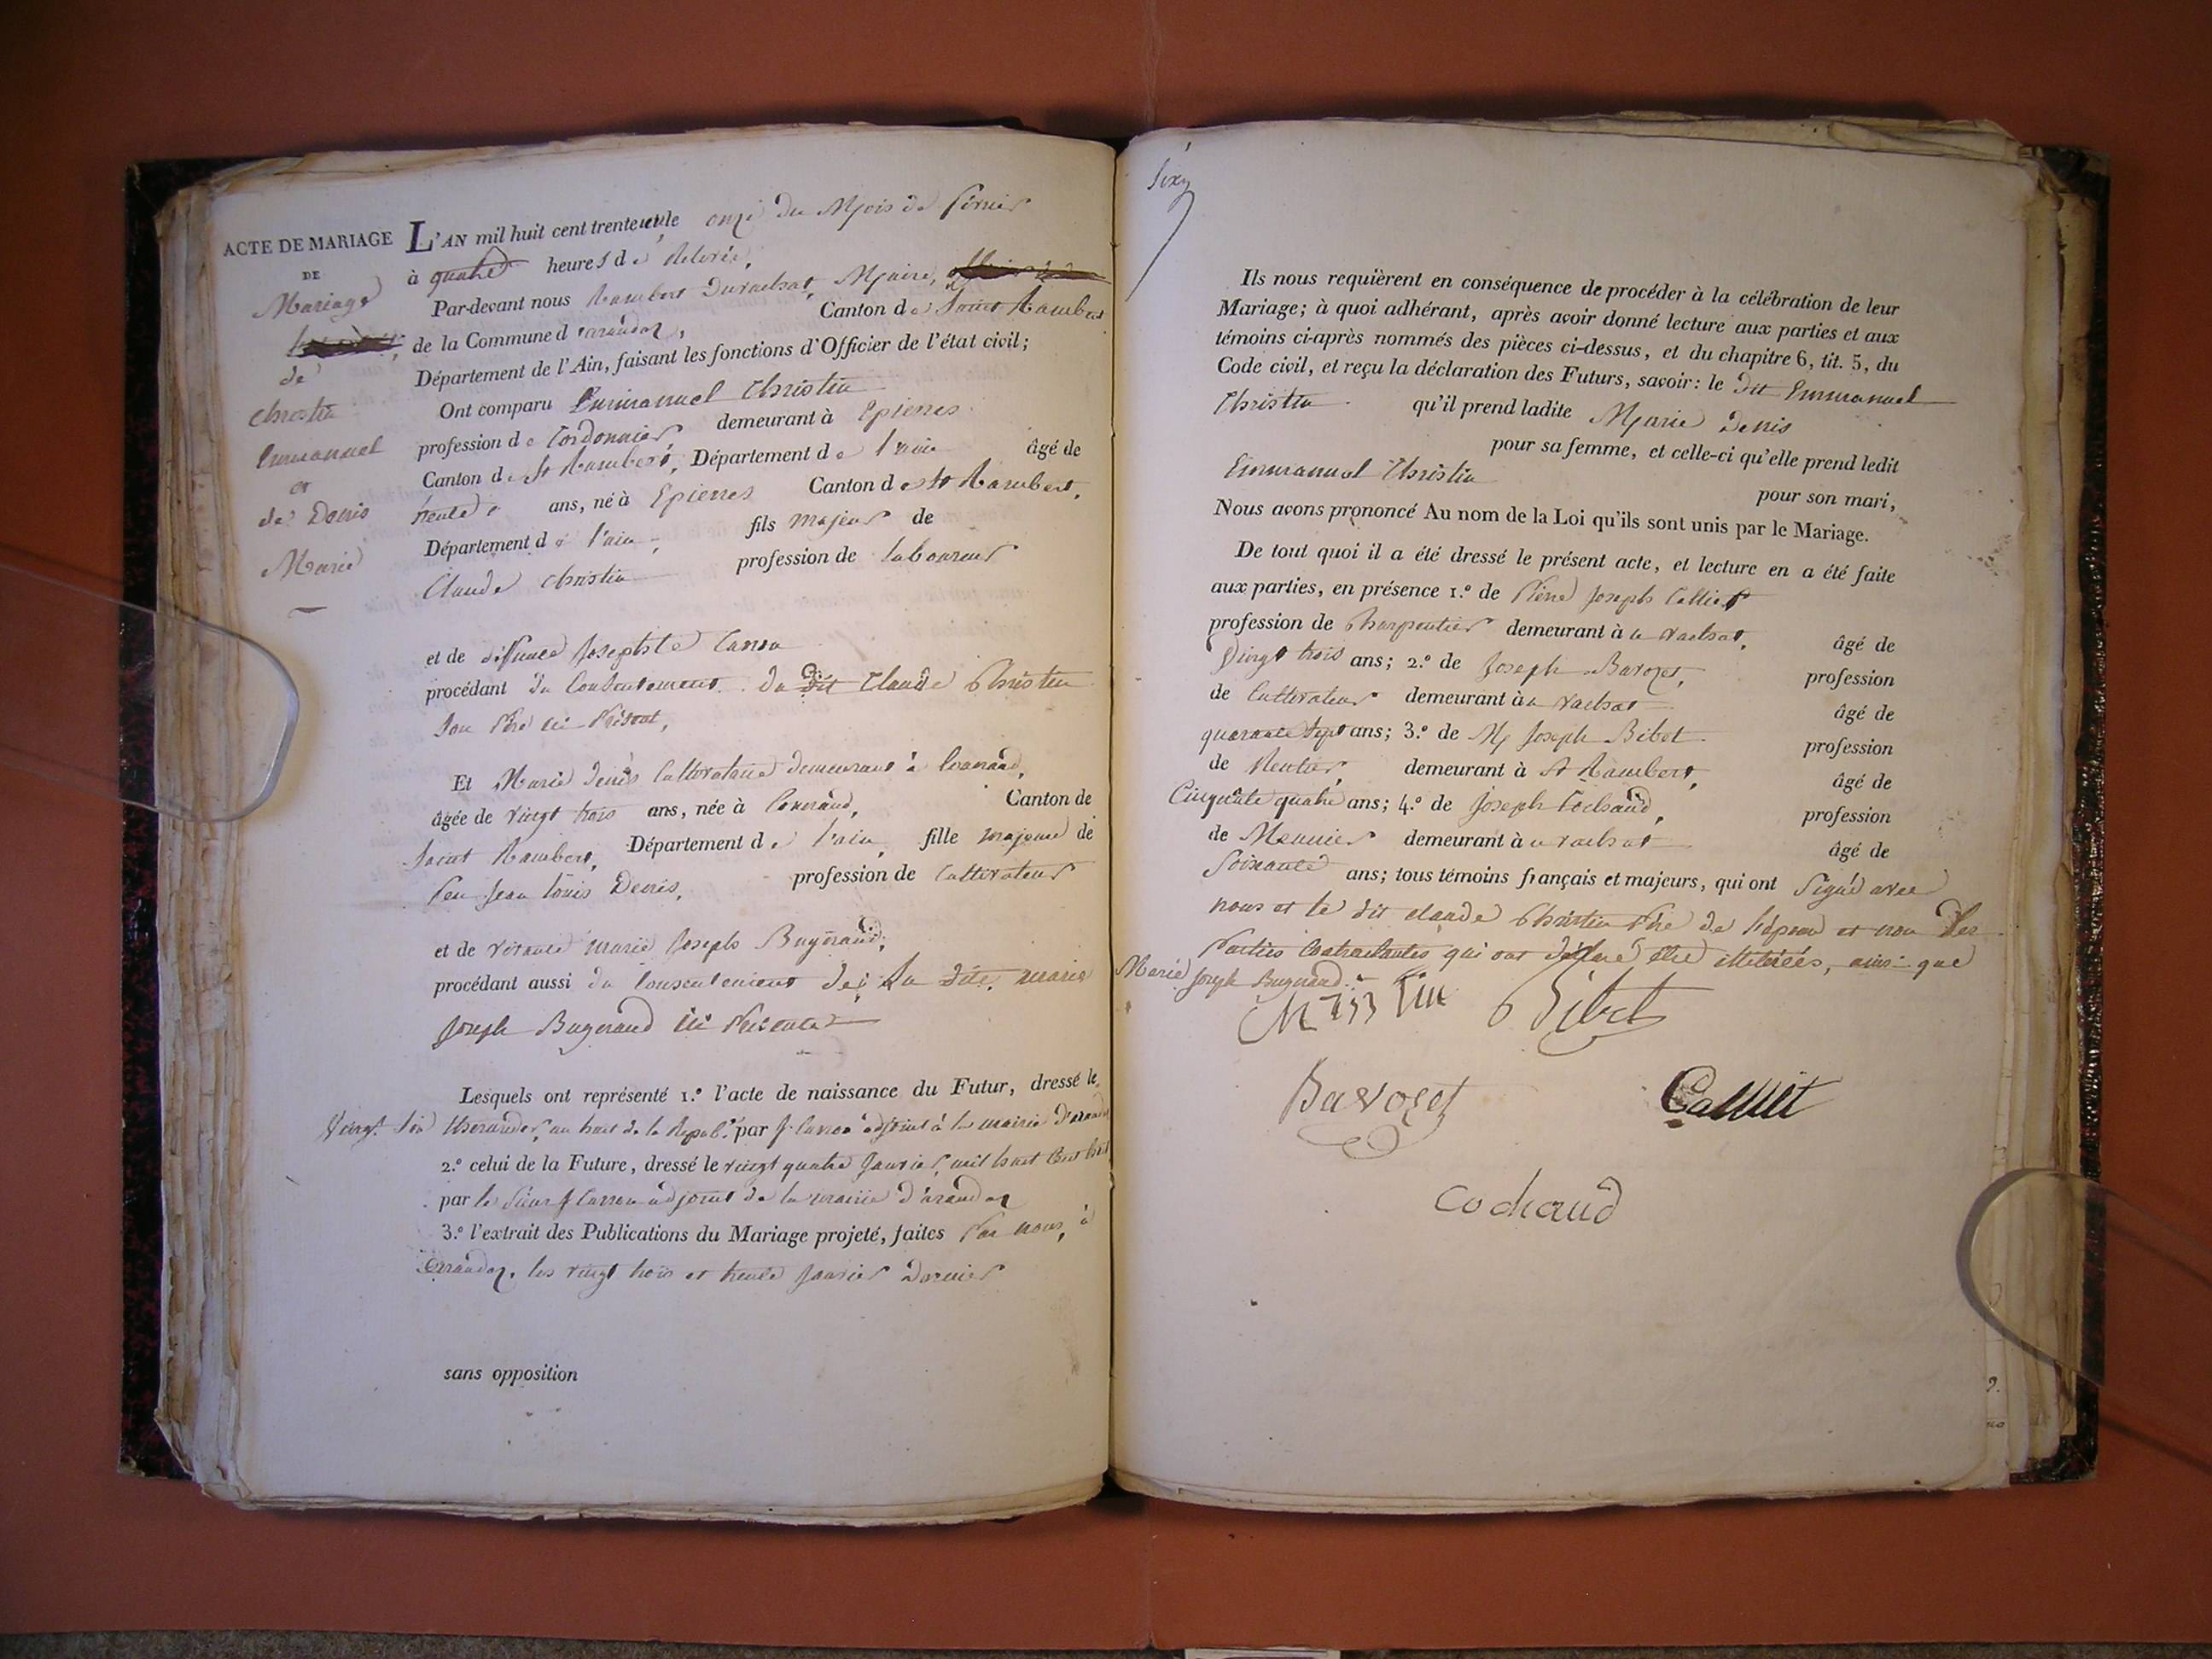 ACTE DE MARIAGE
DE
Mariage
de
Christin
Emmanuel
et
de Denis
Marie
L'AN mil huit cent trente le onze du Mois de février
à quatre heures de
Par-devant nous Rambert Maire,
de la Commune d'arandaz, Canton de Saint Rambert
Département de l'Ain, faisant les fonctions d'Officier de l'état civil;
Ont comparu Emmanuel Christin
profession de Cordonnier demeurant à Epierres
Canton de St Rambert, Département de l'ain âgé de
trente ans, né à Epierres Canton de St Rambert,
Département de l'ain, fils majeur de
Claude Christin profession de laboureur
et de défunte Josephte Carron
procédant du Consentement du dit Claude Christin
son Père ici Présent,
Et Marie Denis Cultivatrice demeurant à
âgée de vingt trois ans, née à Canton de
Saint Rambert, Département de l'ain, fille majeure de
feu Jean Louis Denis, profession de Cultivateur
et de vivante marie Joseph Bugniaud,
procédant aussi du consentement de la dite marie
Joseph Bugniaud ici Présente
Lesquels ont représenté 1.º l'acte de naissance du Futur, dressé le
Vingt six thermidor, an huit de la Républ. par J. Carron adjoint à la mairie d'arandaz
2.º celui de la Future, dressé le vingt quatre Janvier, mil huit Cent huit
par le Sieur J Carron adjoint de la mairie d'arandaz
3.º l'extrait des Publications du Mariage projeté, faites Par nous, à
arandaz, les vingt trois et trente Janvier Dernier
sans opposition
Ils nous requièrent en conséquence de procéder à la célébration de leur
Mariage; à quoi adhérant, après avoir donné lecture aux parties et aux
témoins ci-après nommés des pièces ci-dessus, et du chapitre 6, tit. 5, du
Code civil, et reçu la déclaration des Futurs, savoir: le dit Emmanuel
Christin qu'il prend ladite Marie Denis
pour sa femme, et celle-ci qu'elle prend ledit
Emmanuel Christin
pour son mari,
Nous avons prononcé Au nom de la Loi qu'ils sont unis par le Mariage.
De tout quoi il a été dressé le présent acte, et lecture en a été faite
aux parties, en présence 1.º de Pierre Joseph Calliet
profession de Charpentier demeurant à âgé de
Vingt trois ans; 2.º de Joseph Bavozet, profession
de Cultivateur demeurant à âgé de
quarante sept ans; 3.º de M Joseph Bibet profession
de Rentier, demeurant à St Rambert, âgé de
Cinquante quatre ans; 4.º de Joseph Cochaud, profession
de Meunier demeurant à âgé de
Soixante ans; tous témoins français et majeurs, qui ont Signé avec
nous et le dit claude Christin Père de l'époux et non les
Parties Contractantes qui ont déclaré être illitérées, ainsi que
Marie Joseph Bugniaud
Bibet
Bavozet
Calliet
cochaud